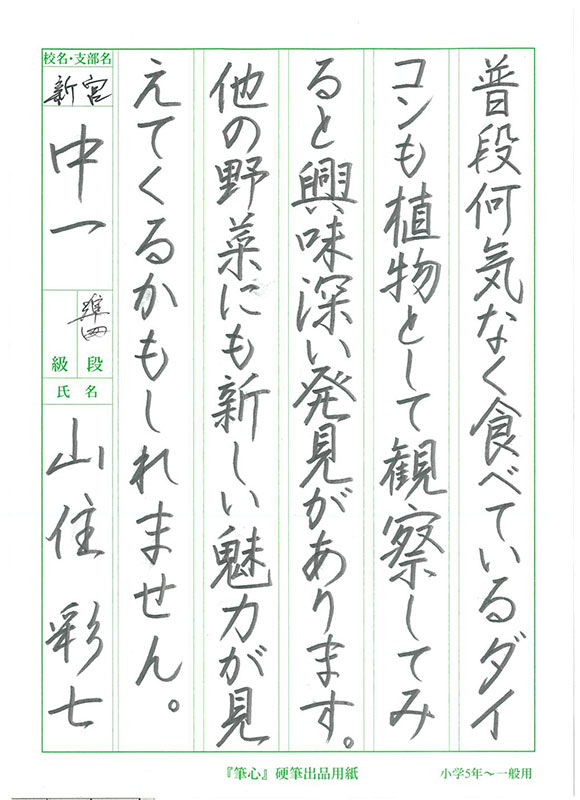 普段何気なく食べているダイ
コンも植物として観察してみ
ると興味深い発見があります。
他の野菜にも新しい魅力が見
えてくるかもしれません。
校名・支部名
新宮
中一
準四
段
級
氏名
山住彩七
『筆心』硬筆出品用紙
小学5年〜一般用